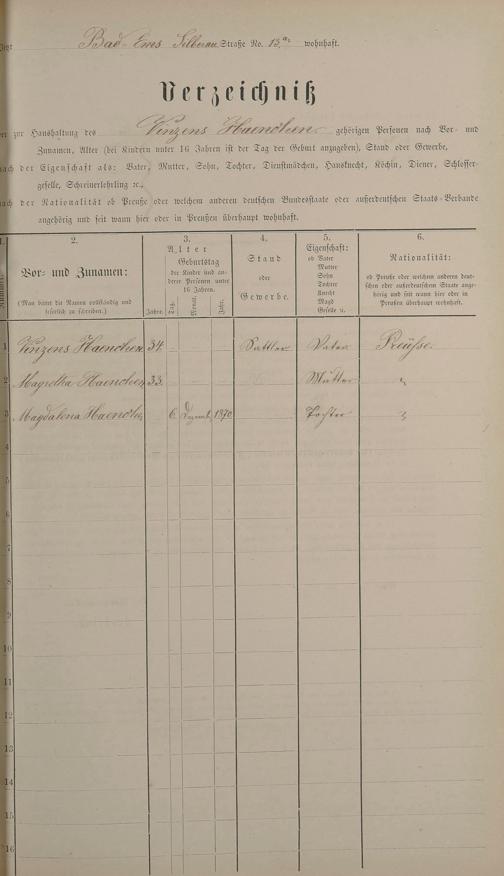 Bad-Ems Silberau Straße No. 13.a. wohnhaft.
Verzeichniß
zur Haushaltung des Vinzens Haenchen gehörigen Personen nach Vor- und
Zunamen, Alter (bei Kindern unter 16 Jahren ist der Tag der Geburt anzugeben), Stand oder Gewerbe,
nach der Eigenschaft als: Vater, Mutter, Sohn, Tochter, Dienstmädchen, Hausknecht, Köchin, Diener, Schlosser-
geselle, Schreinerlehrling ꝛc.,
nach der Nationalität ob Preuße oder welchem anderen deutschen Bundesstaate oder außerdeutschen Staats-Verbande
angehörig und seit wann hier oder in Preußen überhaupt wohnhaft.
1. 2. 3. 4. 5. 6.
Nummer.
Vor- und Zunamen:
(Man bittet die Namen vollständig und
leserlich zu schreiben.)
Alter
Jahre.
Geburtstag
der Kinder und an-
derer Personen unter
16 Jahren.
Tag. Monat. Jahr.
Stand
oder
Gewerbe.
Eigenschaft:
ob Vater
Mutter
Sohn
Tochter
Knecht
Magd
Geselle u.
Nationalität:
ob Preuße oder welchem anderen deut-
schen oder außerdeutschen Staate ange-
hörig und seit wann hier oder in
Preußen überhaupt wohnhaft.
1 Vinzens Haenchen 34. Sattler Vater Preüsse.
2 Magretha Haenchen 33. Mutter "
3 Magdalena Haenchen 6. Dezemb. 1870 Tochter "
4
5
6
7
8
9
10
11
12
13
14
15
16